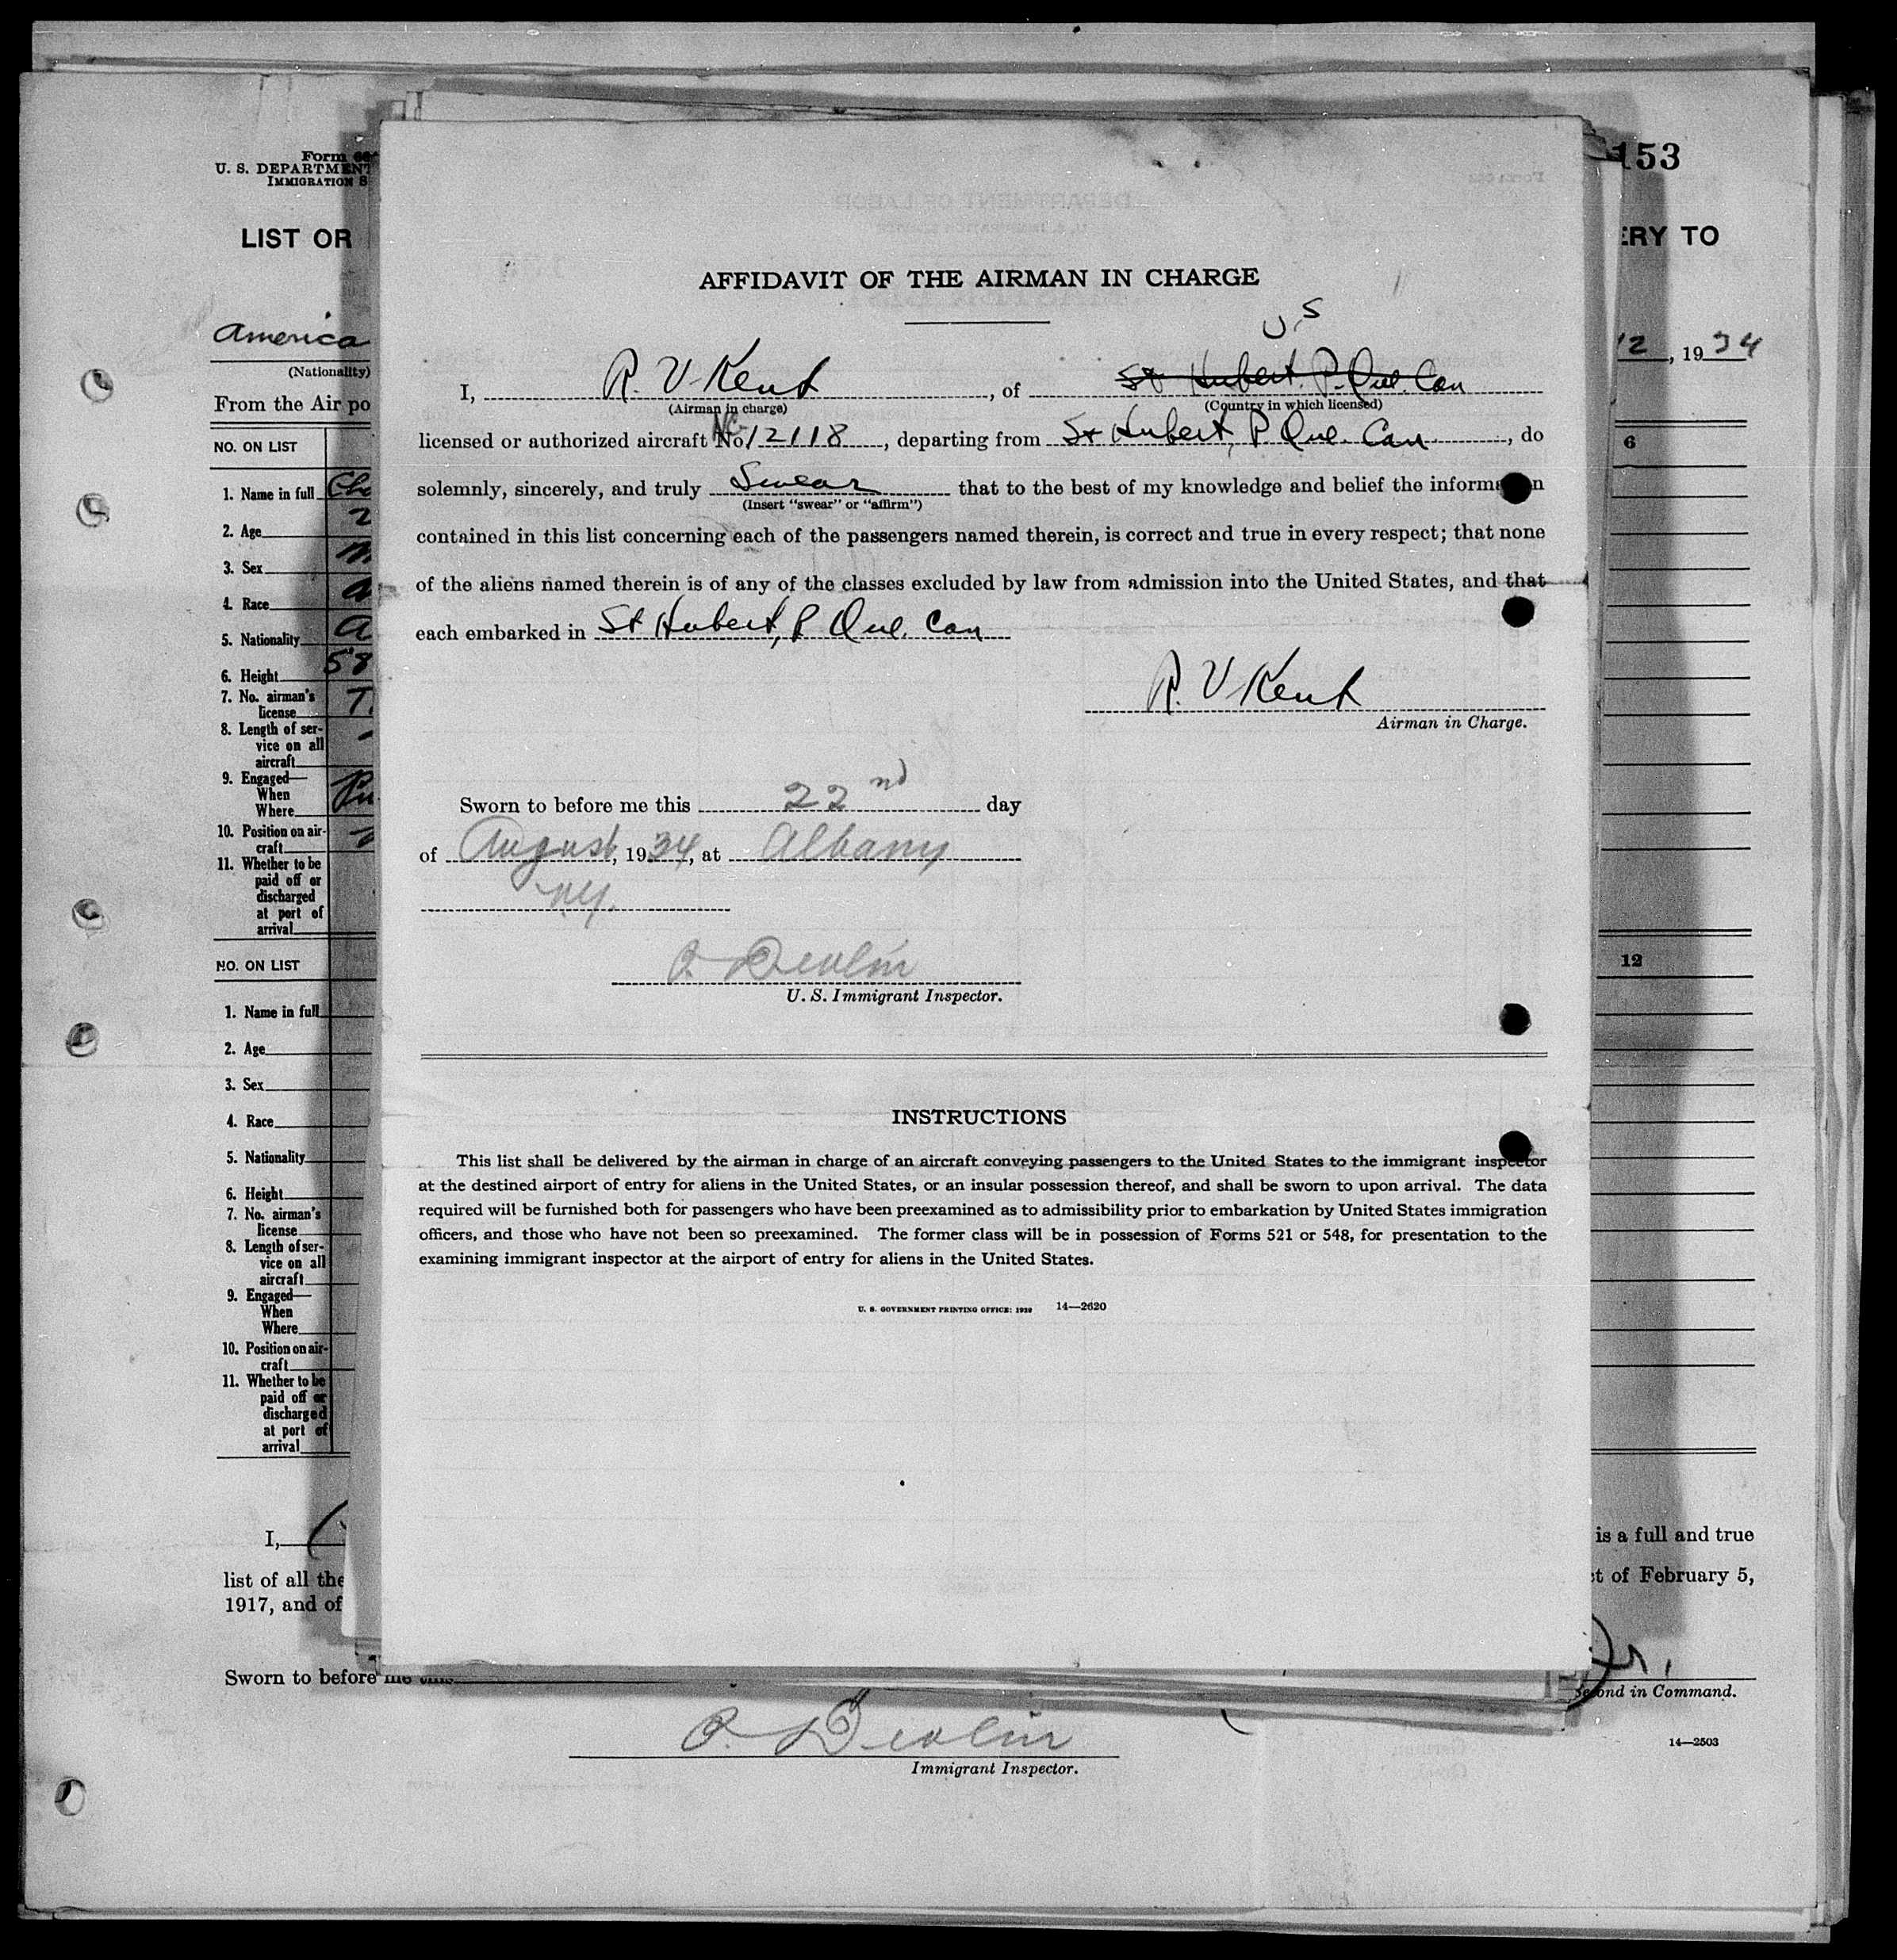 Form
U. S. DEPARTMENT
IMMIGRATION S
153
LIST OR
ERY TO
America
(Nationality)
12, 1934
From the Air po
NO. ON LIST
6
1. Name in full
2. Age
3. Sex
4. Race
5. Nationality
6. Height
58
7. No. airman's
license
T.
8. Length of ser-
vice on all
aircraft
9. Engaged—
When
Where
10. Position on air-
craft
11. Whether to be
paid off or
discharged
at port of
arrival
NO. ON LIST
12
1. Name in full
2. Age
3. Sex
4. Race
5. Nationality
6. Height
7. No. airman's
license
8. Length of ser-
vice on all
aircraft
9. Engaged—
When
Where
10. Position on air-
craft
11. Whether to be
paid off or
discharged
at port of
arrival
I,
is a full and true
list of all the
ct of February 5,
1917, and of
Sworn to before me this
Jr.
Second in Command.
P. Devlin
Immigrant Inspector.
14—2503
AFFIDAVIT OF THE AIRMAN IN CHARGE
U.S
I, R. V Kent, of St Hubert. P. Que. Can
(Airman in charge) (Country in which licensed)
licensed or authorized aircraft No NC 12118, departing from St Hubert, P Que. Can, do
solemnly, sincerely, and truly Swear that to the best of my knowledge and belief the information
(Insert "swear" or "affirm")
contained in this list concerning each of the passengers named therein, is correct and true in every respect; that none
of the aliens named therein is of any of the classes excluded by law from admission into the United States, and that
each embarked in St Hubert, P Que. Can
R. V Kent
Airman in Charge.
Sworn to before me this 22nd day
of August, 1934, at Albany
N.Y.
P. Devlin
U. S. Immigrant Inspector.
INSTRUCTIONS
This list shall be delivered by the airman in charge of an aircraft conveying passengers to the United States to the immigrant inspector
at the destined airport of entry for aliens in the United States, or an insular possession thereof, and shall be sworn to upon arrival. The data
required will be furnished both for passengers who have been preexamined as to admissibility prior to embarkation by United States immigration
officers, and those who have not been so preexamined. The former class will be in possession of Forms 521 or 548, for presentation to the
examining immigrant inspector at the airport of entry for aliens in the United States.
U. S. GOVERNMENT PRINTING OFFICE: 1929 14—2620